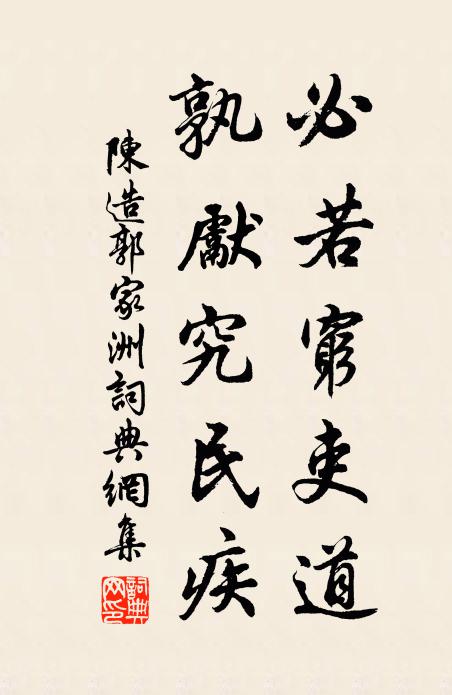 必若窮吏道
孰獻究民疾
陳造郭家洲詞典網集
詞典网印